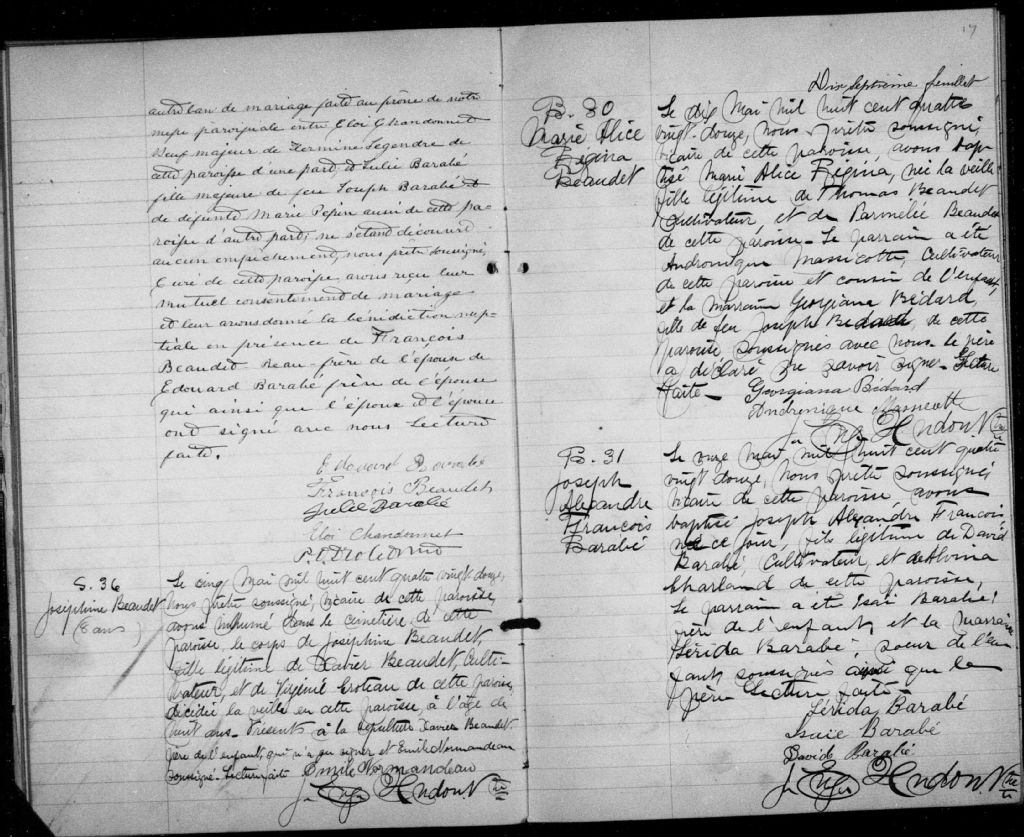 autre ban de mariage faite au prône de notre
messe paroissiale entre Eloi Chandonnet
Veuf majeur de Hermine Legendre de
cette paroisse d'une part, & Julie Barabé
fille majeure de feu Joseph Barabé &
de défunte Marie Pepin aussi de cette pa-
roisse d'autre part; ne s'étant découvert
aucun empêchement, nous prêtre soussigné,
Curé de cette paroisse, avons reçu leur
mutuel consentement de mariage
et leur avons donné la bénédiction nup-
tiale en présence de François
Beaudet Beau-frère de l'épouse de
Edouard Barabé frère de l'épouse
qui ainsi que l'époux & l'épouse
ont signé avec nous Lecture
faite.
Edouard Barabé
François Beaudet
Julie Barabé
Eloi Chandonnet
S. 36
Joséphine Beaudet
(8 ans)
Le cinq Mai mil huit cent quatre vingt douze,
Nous prêtre soussigné, vicaire de cette paroisse,
avons inhumé dans le cimetière de cette
paroisse, le corps de Joséphine Beaudet
fille légitime de Xavier Beaudet, Culti-
vateur, et de Virginie Croteau de cette paroisse,
décédée la veille en cette paroisse, à l'âge de
huit ans. Présents à la sépulture Xavier Beaudet
père de l'enfant, qui n'a su signer et Emile Normandeau
soussigné. Lecture faite
Emile Normandeau
Ptre
17
Dix Septième feuillet
B. 30
Marie Alice
Régina
Beaudet
Le dix Mai mil huit cent quatre
vingt-douze, Nous prêtre soussigné,
vicaire de cette paroisse, avons bap-
tisé Marie Alice Régina, née la veille
fille légitime de Thomas Beaudet
Cultivateur et de Parmélie Beaudet
de cette paroisse - Le parrain a été
Andronique Massicotte, Cultivateur
de cette paroisse et cousin de l'enfant,
et la marraine Georgiana Bédard,
fille de feu Joseph Bédard, de cette
paroisse, soussignés avec nous le père
a déclaré ne savoir signer - Lecture
faite -
Georgiana Bédard
Andronique Massicotte
Ptre
B. 31
Joseph
Alexandre
François
Barabé
Le onze Mai mil huit cent quatre
vingt douze, Nous prêtre soussigné,
vicaire de cette paroisse avons
baptisé Joseph Alexandre François
né ce jour, fils légitime de David
Barabé, Cultivateur, et de Alvina
Charland de cette paroisse,
Le parrain a été Isaï Barabé,
frère de l'enfant, et la marraine
Lérida Barabé, soeur de l'en-
fant, soussignés ainsi que le
père Lecture faite -
Lérida Barabé
Isaie Barabé
David Barabé
Ptre